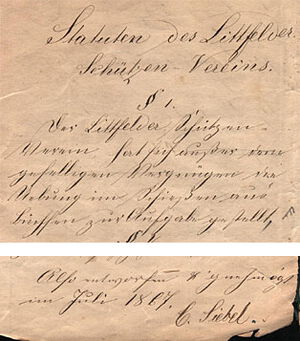 Statuten des Littfelder
Schützen-Vereins.
§ 1.
Der Littfelder Schützen-
Verein hat sich außer dem
geselligen Vergnügen die
Uebung im Schießen aus
Büchsen zur Aufgabe gestellt,
§ 2.
Also entworfen & genehmigt
im Juli 1867.
C. Siebel.